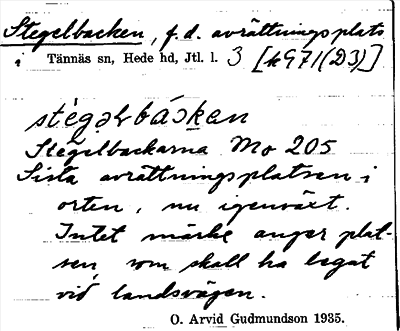 Stegelbacken, f.d. avrättningsplats
i Tännäs sn, Hede hd, Jtl. l. 3 [k971(D3)]
Stegelbackarna Mo 205
Sista avrättningsplatsen i
orten, nu igenväxt.
Intet märke anger plat-
sen, som skall ha legat
vid landsvägen.
O. Arvid Gudmundson 1935.